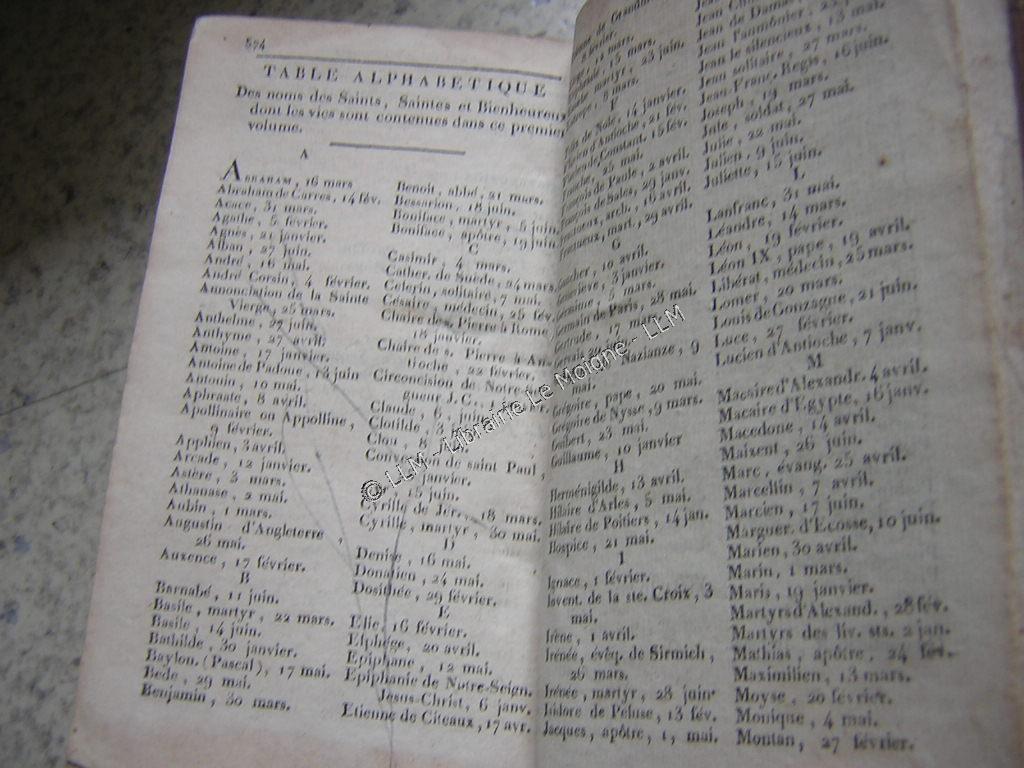 574
TABLE ALPHABETIQUE
Des noms des Saints, Saintes et Bienheureux
dont les vies sont contenues dans ce premier
volume.
A
ABRAHAM, 16 mars
Abraham de Carres, 14 fév.
Acace, 31 mars.
Agathe, 5 février.
Agnès, 21 janvier.
Alban, 27 juin.
André, 16 mai.
André Corsin, 4 février.
Annonciation de la Sainte
Vierge, 25 mars.
Anthelme, 27 juin.
Anthyme, 27 avril.
Antoine, 17 janvier.
Antoine de Padoue, 13 juin
Antonin, 10 mai.
Aphraate, 8 avril.
Apollinaire ou Appolline,
9 février.
Apphien, 3 avril.
Arcade, 12 janvier.
Astère, 3 mars.
Athanase, 2 mai.
Aubin, 1 mars.
Augustin d'Angleterre,
26 mai.
Auxence, 17 février.
B
Barnabé, 11 juin.
Basile, martyr, 22 mars.
Basile, 14 juin.
Bathilde, 30 janvier.
Baylon (Pascal), 17 mai.
Bede, 29 mai.
Benjamin, 30 mars.
Benoit, abbé, 21 mars.
Bessarion, 18 juin.
Boniface, martyr, 5 juin.
Boniface, apôtre, 19 juin.
C
Casimir, 4 mars.
Cather. de Suède, 24 mars.
Celerin, solitaire, 7 mai.
Césaire, médecin, 25 fév.
Chaire des. Pierre à Rome
18 janvier.
Chaire de s. Pierre à An-
tioche, 22 février.
Circoncision de Notre-
gueur J. C., 1
Claude, 6, juin
Clotilde, 3 juin
Clou, 8
Conversion de saint Paul,
janvier.
15 juin.
Cyrille de Jér., 18 mars.
Cyrille, martyr, 30 mai.
D
Denise, 16 mai.
Donatien, 24 mai.
Dosithée, 29 février.
E
Elie, 16 février.
Elphége, 20 avril.
Epiphane, 12 mai.
Epiphanie de Notre-Seign.
Jesus-Christ, 6 janv.
Etienne de Citeaux, 17 avr.
de Grandm
février.
mars.
15 mars.
martyr, 23 juin.
8 mars.
F
de Nole, 14 janvier.
d'Antioche, 21 fév.
de Constant. 15 fév.
25 mai.
de Paule, 2 avril.
de Sales, 29 janv.
arch., 16 avril.
mart., 29 avril.
G
Gaucher, 10 avril.
Geneviève, 3 janvier.
5 mars.
Germain de Paris, 28 mai.
Gertrude, 17 mars
Nazianze, 9
mai.
Grégoire, pape, 20 mai.
Grégoire de Nysse, 9 mars.
Guibert, 23 mai.
Guillaume, 10 janvier
H
Herménigilde, 13 avril.
Hilaire d'Arles, 5 mai.
Hilaire de Poitiers, 14 jan.
Hospice, 21 mai.
I
Ignace, 1 février.
Invent. de la ste. Croix, 3
mai.
Irène, 1 avril.
Irénée, évêq. de Sirmich,
26 mars.
Irénée, martyr, 28 juin.
Isidore de Peluse, 13 fév.
Jacques, apôtre, 1, mai.
Jean
Jean de Damas
Jean l'aumônier, 23
Jean le silencieux, 13 mai.
Jean solitaire, 27 mars.
Jean-Franç. Regis, 16 juin.
Joseph, 19 mars.
Jule, soldat, 27 mai.
Julie, 22 mai.
Julien, 9 juin.
Juliette, 15 juin.
L
Lanfranc, 31 mai.
Léandre, 14 mars.
Léon, 19 février.
Léon IX, pape, 19 avril.
Libérat, médecin, 25 mars.
Lomer, 20 mars.
Louis de Gonzagne, 21 juin.
Luce, 27 février.
Lucien d'Antioche, 7 janv.
M
Macaire d'Alexandr. 4 avril.
Macaire d'Egypte, 16 janv.
Macedone, 14 avril.
Maixent, 26 juin.
Marc, évang. 25 avril.
Marcellin, 7 avril.
Marcien, 17 juin.
Marguer. d'Ecosse, 10 juin.
Marien, 30 avril.
Marin, 1 mars.
Maris, 19 janvier.
Martyrs d'Alexand., 28 fév.
Martyrs des liv. sts. 2 jan.
Mathias, apôtre, 24 fév.
Maximilien, 13 mars.
Moyse, 20 février.
Monique, 4 mai.
Montan, 27 février.
© LLM - Librairie Le Moigne - LLM